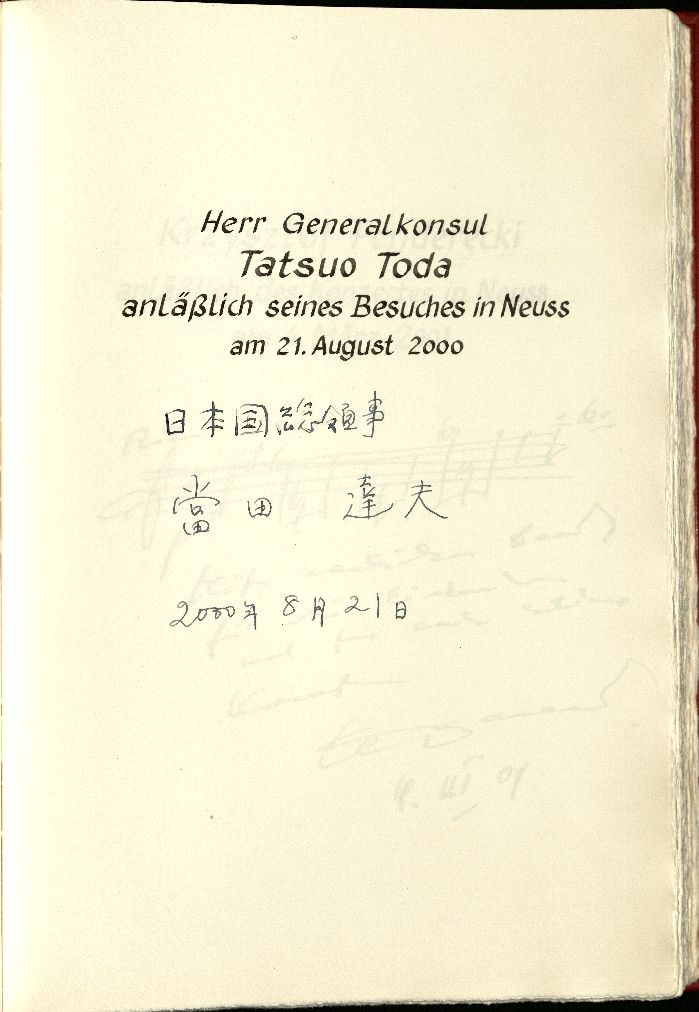 Herr Generalkonsul
Tatsuo Toda
anläßlich seines Besuches in Neuss
am 21. August 2000
日本国総領事
當田 達夫
2000年 8月21日